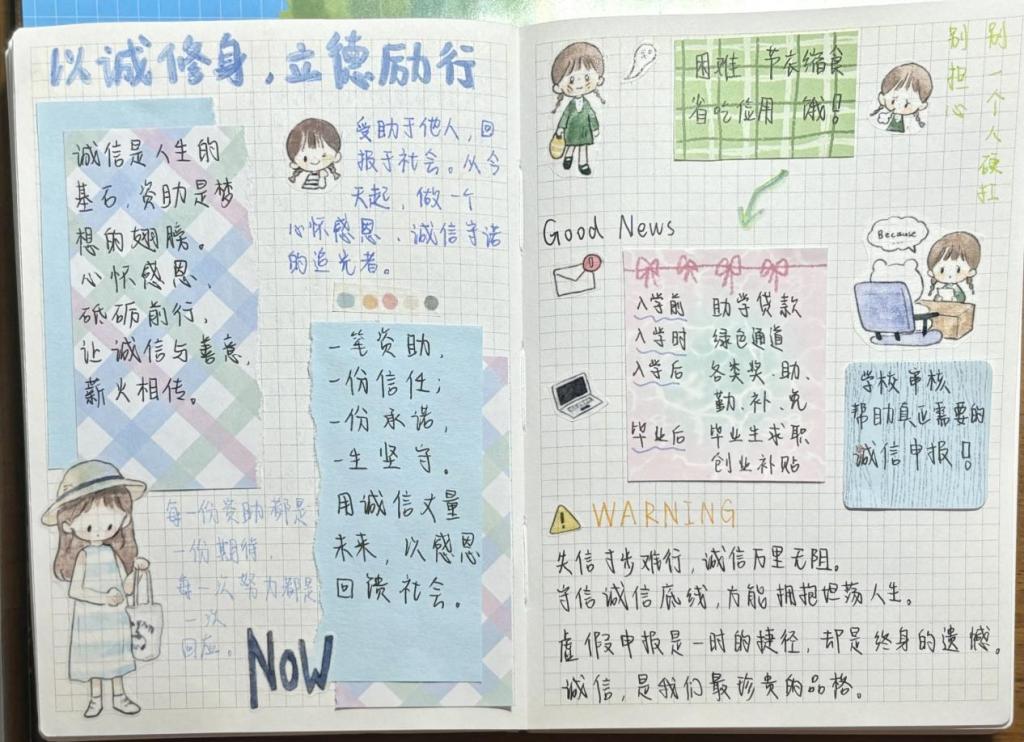 以诚修身,立德励行
诚信是人生的
基石,资助是梦
想的翅膀。
心怀感恩,
砥砺前行,
让诚信与善意,
薪火相传。
受助于他人,回
报于社会。从今
天起,做一个
心怀感恩、诚信守诺
的追光者。
一笔资助,
一份信任;
一份承诺,
一生坚守。
用诚信丈量
未来,以感恩
回馈社会。
每一份资助都是
一份期待,
每一次努力都是
一次
回应。
NOW
困难 节衣缩食
省吃俭用 饿!
别一个人硬扛
别担心
Good News
入学前 助学贷款
入学时 绿色通道
入学后 各类奖、助、
勤、补、免
毕业后 毕业生求职
创业补贴
Because
学校审核
帮助真正需要的
诚信申报!
WARNING
失信寸步难行,诚信万里无阻。
守信诚信底线,方能拥抱坦荡人生。
虚假申报是一时的捷径,却是终身的遗憾。
诚信,是我们最珍贵的品格。